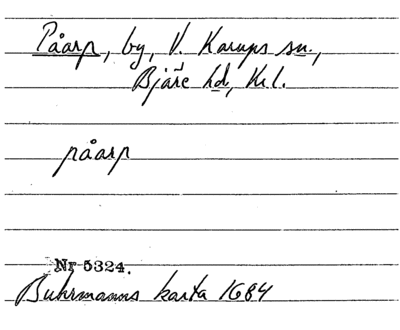 Påarp, by, V. Karups sn.,
Bjäre hd, Kr.l.
påarp
Nr 5324.
Buhrmanns karta 1684